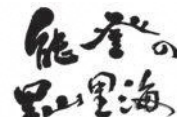 能登の
里山里海